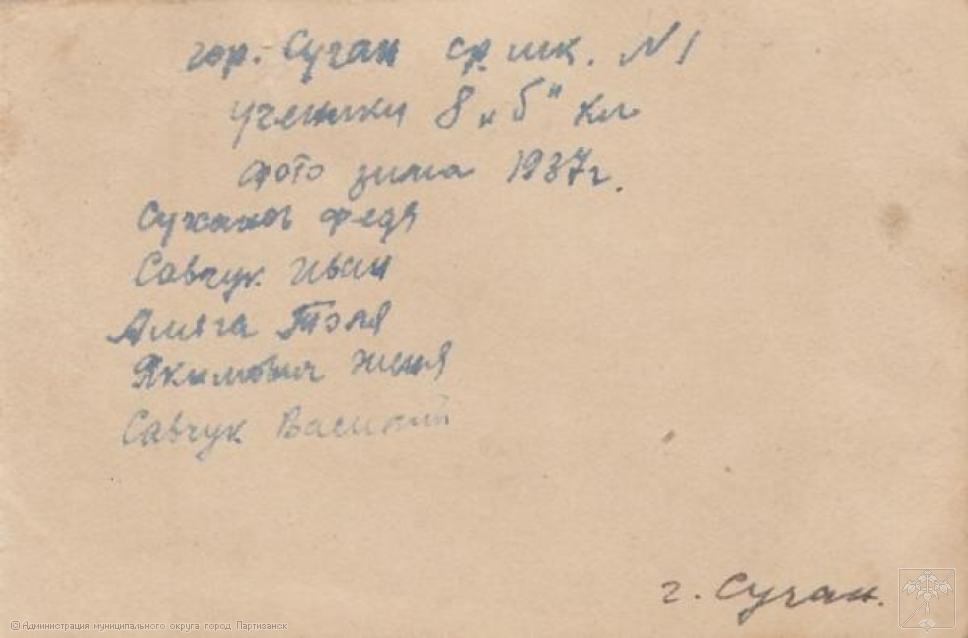 гор. Сучан ср. шк. N 1
ученики 8 „Б" кл
фото зима 1937г.
Суханов Федя
Савчук Иван
Амяга Толя
Якимович Женя
Савчук Василий
г. Сучан.
© Администрация муниципального округа город Партизанск